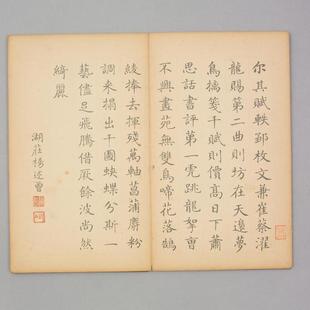 尔其賦軼鄴枚文兼崔蔡濯
龍賜第二曲則坊在天邊夢
鳥摛箋千賦則價高日下蕭
思話書評第一霓跳龍拏曹
不興畫苑無雙鳥啼花落鵠
綾捧去揮殘萬軸菖蒲麝粉
調來搨出千圖蛺蝶分斯一
藝儘足飛騰借厥餘波尚然
綺麗
湖莊楊述曾